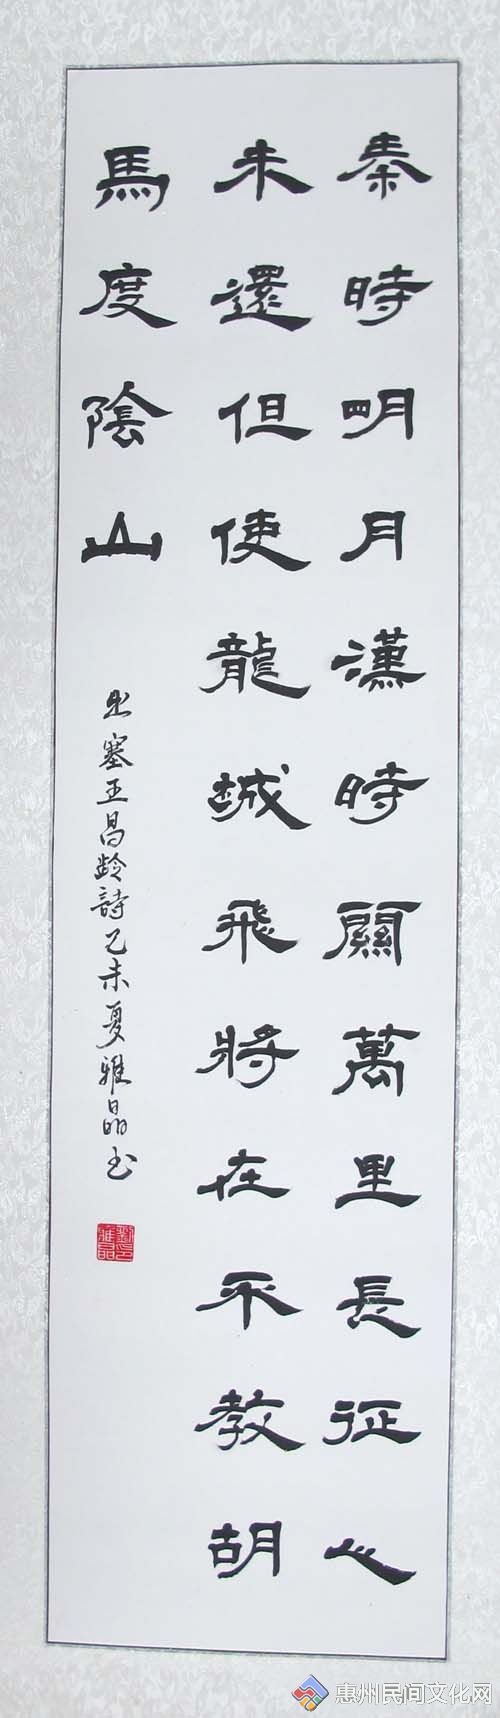 秦時明月漢時關萬里長征人
未還但使龍城飛將在不教胡
馬度陰山
出塞王昌齡詩乙未夏雅晶書
劉印雅晶
惠州民间文化网